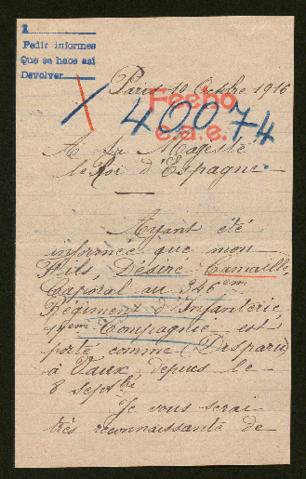 Pedir informes
Que se hace así
Devolver
Paris 10 Octobre 1916
Fecho
40074
A Sa Majesté
le Roi d'Espagne
Ayant été
informée que mon
Fils, Désiré Camaille,
Caporal au 346ème
Régiment d'Infanterie,
Compagnie est
porté comme (Disparu)
à Vaux, depuis le
8 septbre
Je vous serai
très reconnaissante de